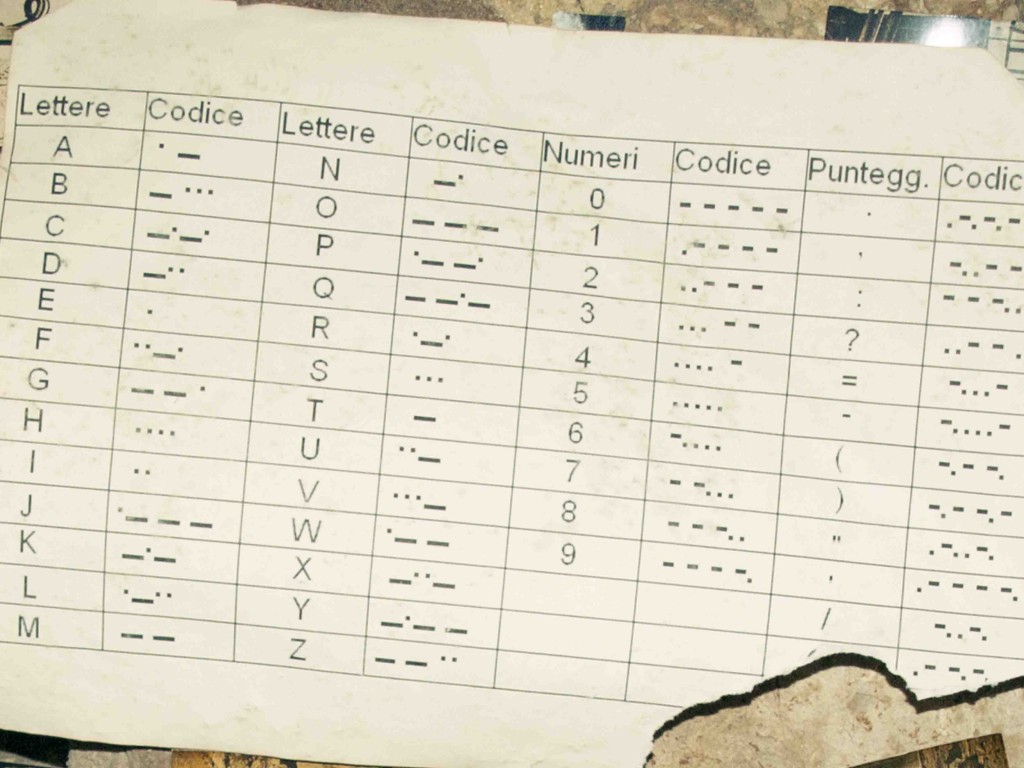 Lettere Codice Lettere Codice Numeri Codice Puntegg. Codic
A ·– N –· 0 ----- . .-.-.-
B –··· O ––– 1 .---- , -..--
C –·–· P ·––· 2 ..--- : ---..
D –·· Q ––·– 3 ...-- ? ..--.
E · R ·–· 4 ....- = -...-
F ··–· S ··· 5 ..... - -....-
G ––· T – 6 -.... ( -.--.
H ···· U ··– 7 --... ) -.--.-
I ·· V ···– 8 ---.. " .-..-.
J ·––– W ·–– 9 ----. ' .----.
K –·– X –··– / -..-.
L ·–·· Y –·–– .--.-.
M –– Z ––··